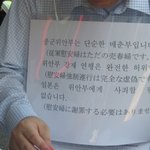 종군위안부는 단순한 매춘부입니다
(従軍慰安婦はただの売春婦です
위안부 강제 연행은 완전한 허위
(慰安婦強制連行は完全な虚偽で
일본은 위안부에 사죄할
없습니다.
(慰安婦に謝罪する必要はありませ